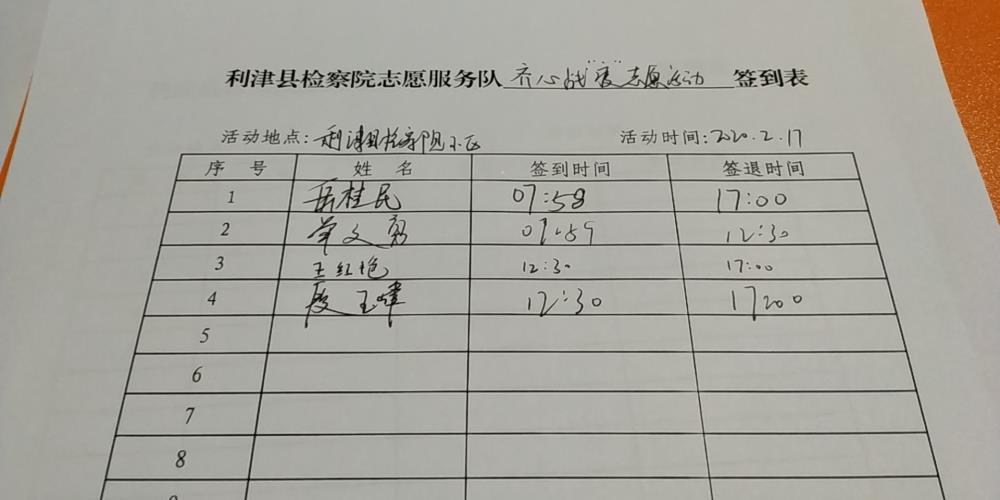 利津县检察院志愿服务队 齐心战"疫"志愿活动 签到表
活动地点:利津县检察院小区 活动时间:2020.2.17
序号 姓名 签到时间 签退时间
1 岳桂民 07:58 17:00
2 单文 07:59 12:30
3 王红艳 12:30 17:00
4 段玉 12:30 17:00
5
6
7
8